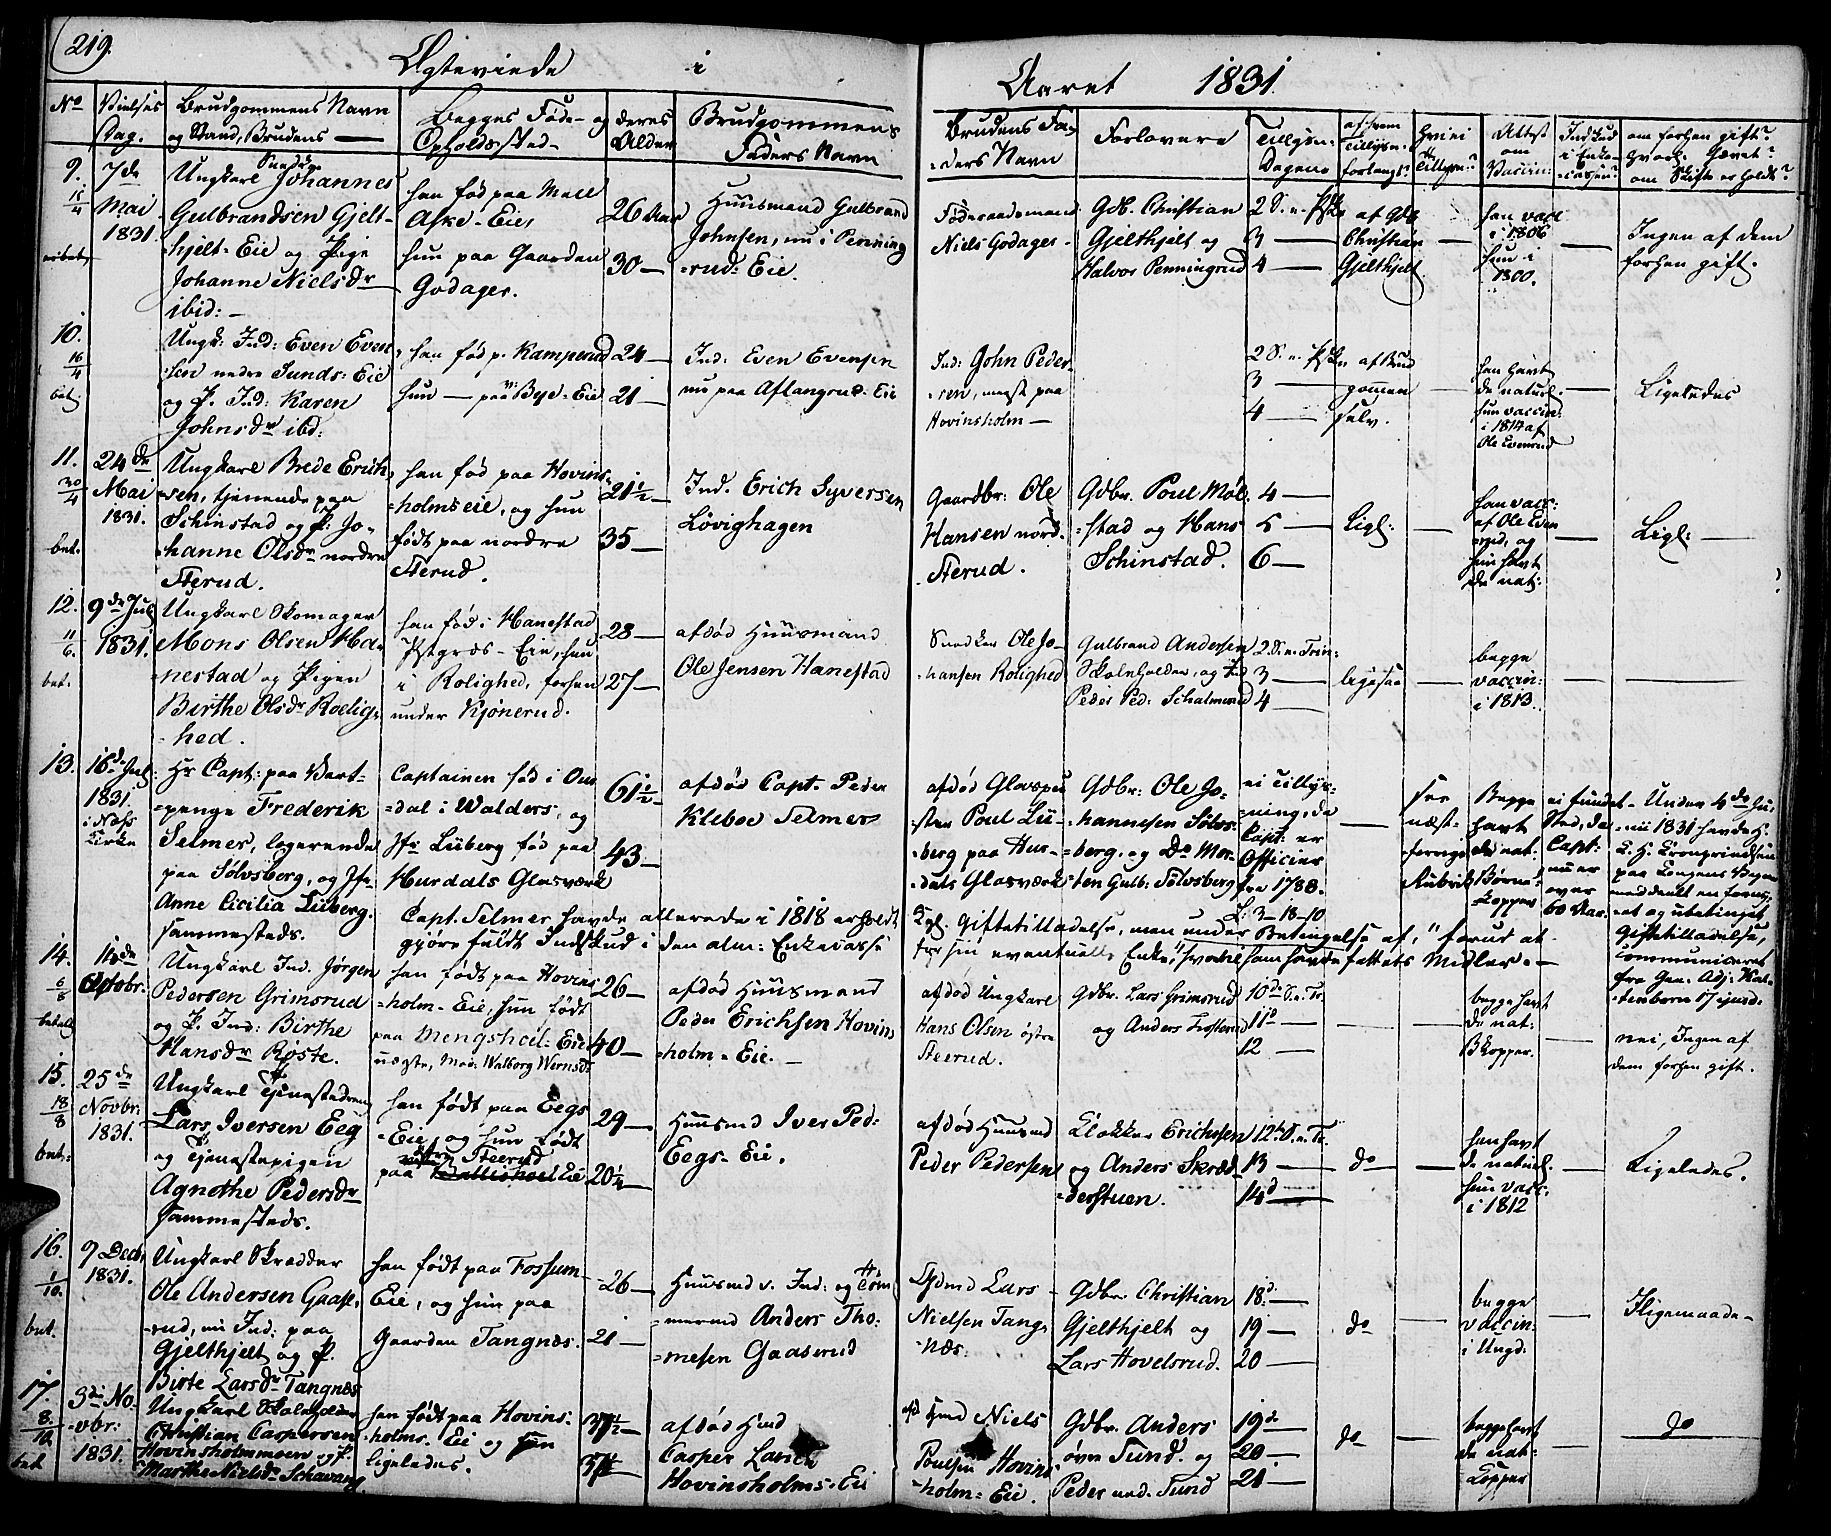 219.
Ægteviede i Aaret 1831.
No Vielses Dag. Brudgommens Navn og Stand, Brudens — Begges Føde- og Opholdssted deres Alder Brudgommens Faders Navn Brudens Faders Navn Forlovere Tillysn: Dagene af hvem Tillysn: forlangt? Hvi ei Tillysn:? Attest om Vaccin: Indskud i Enkecassen? om forhen gift? hvorl. Hævet? om Skifte er holdt?
9. 15/4 7de Mai 1831.
Ungkarl Snedker Johannes
Gulbrandsen Gjelt-
hjelt-Eie og Pige
Johanne Nielsdr
ibid: —
han fød paa Mell
Aske-Eie,
hun paa Gaarden
Godager.
26 Aar
30 —
Huusmand Gulbrand
Johnsen, nu i Penning
=rud-Eie.
Føderaadsmand
Niels Godager
Gdb. Christian
Gjelthjelt og
Halvor Penningrud
2 S. e. Pske
3 —
4 —
af Gdb
Christian
Gjelthjelt
—
han vacc
i 1806
hun i
1800.
—
Ingen af dem
forhen gift.
10. 16/4 bet
Ungk: Ind: Even Even
sen nedre Sunds-Eie
og P. Ind: Karen
Johnsdr ibd:
han fød p. Kamperud
hun — paa Bye-Eie
24 —
21 —
Ind: Even Evensen
nu paa Aslangrud-Eie
Ind: John Peder
sen, næst paa
Hovinsholm —
2 S. e. Pske
3 —
4 —
af Brud
gommen
selv.
—
han havt
de naturl.
hun vaccin:
i 1814 af
Ole Evenrud
—
Ligeledes
11. 30/4 bet. 24de Mai 1831.
Ungkarl Brede Erich
sen, tjenende paa
Schinstad og P: Jo-
hanne Olsdr nordre
Sterud.
han fød paa Hovins-
=holmseie, og hun
født paa nordre
Sterud.
21½ —
35 —
Ind. Erich Syversen
Løvighagen
Gaardbr: Ole
Hansen nord.
Sterud.
Gdbr. Poul Møl-
=stad og Hans
Schinstad.
4 —
5 —
6 —
Ligl:
—
han vacc:
af Ole Even
rud, og
hun havt
de nat:
—
Ligl: —
12. 11/6. bet. 9de Juli 1831.
Ungkarl Skomager
Mons Olsen Ha-
nestad og Pigen
Birthe Olsdr Roelig-
hed.
han fød i Hanestad
Pstgrds-Eie, hun
i Rolighed, forhen
under Kjønerud.
28 —
27 —
afdød Huusmand
Ole Jensen Hanestad
Snedker Ole Jo-
hansen Rolighed
Gulbrand Andersen
Skoleholder, og Ind
Peder Ped: Schalmerud
2 S. e. Trin:
3 —
4 —
ligesaa
—
begge
vaccin:
i 1813.
—
—
13. 16de Jul: 1831. i Næss Kirke
Hr Capt: paa Vart-
=penge Frederik
Selmer, logerende
paa Sølvsberg, og Jfr.
Anne Cicilia Lüberg.
sammesteds.
Captainen fød i Ou
=dal i Walders, og
Jfr Lüberg fød paa
Hurdals Glasværk
61½ —
43 —
afdød Capt. Peder
Kleboe Selmer
afdød Glaspu
ster Poul Lü-
berg paa Hur-
=dals Glasværk
Gdbr: Ole Jo-
hannesen Sølvs-
=berg, og Do Mor-
ten Gulb: Sølvsberg
ei Tillys-
ning, da
Capt: er
Officier
fra 1788.
—
see
næst-
forrige
Rubrik
Begge
havt
de nat:
Børne
Kopper
ei fundet
Sted, da
Capt:
nu er
over
60 Aar.
Under 4de Ju-
nii 1831 havde H.
K. H. Kronprindsen
paa Kongens Vegne
meddeelt en fornyet
og ubetinget
Giftetilladelse,
communiceret
fra Gen: Adj: Kal-
tenborn 17 ejusd:
Capt. Selmer havde allerede i 1818 erholdt Kgl. Giftetilladelse, men under Betingelse af, "forud at
gjøre fuldt Indskud i den alm: Enkecasse for sin eventuelle Enke", hvortil ham havde fattets Midler. —
14. 6/8 betalt 11te Octobr.
Ungkarl Ind. Jørgen
Pedersen Grimsrud
og P. Ind: Birthe
Hansdr Røste.
han født paa Hovins
=holm-Eie, hun født
paa Mengshoel-Eie
uægte, Mod: Walborg Wernsdr
26 —
40 —
afdød Huusmand
Peder Erichsen Hovins
=holm-Eie. —
afdød Ungkarl
Hans Olsen østre
Steerud.
Gdbr. Lars Grimsrud
og Anders Frosterud
10de S. e. Tr.
11 —
12 —
—
—
begge havt
de nat:
Bkopper.
—
nei, Ingen af
dem forhen gift.
15. 18/8 bet: 25de Novbr: 1831.
Ungkarl Tjenestedreng
Lars Iversen Eeg
og Tjenestepigen
Agnethe Pedersdr
sammesteds.
han født paa Eegs
Eie, og hun født
paa østre Steerud Eie
29 —
20½ —
Huusmd Iver Ped:
Eegs-Eie.
afdød Huusmd
Peder Pedersen
Klokker Erichsen
og Anders Skræd
=derstuen.
12te S. e. Tr.
13 —
14d —
do
—
han havt
de naturl.
hun vacc:
i 1812
—
Ligeledes.
16. 1/10. bet. 9 Decbr 1831.
Ungkarl Skrædder
Ole Andersen Gaase-
rud, nu Ind: paa
Gjelthjelt og P.
Birte Larsdr Tangnæs
han født paa Fossum-
Eie, og hun paa
Gaarden Tangnæs.
26 —
21 —
Huusmd v. Ind: og Tøm
=mermd Anders Tho-
=mesen Gaaserud
Lars
Nielsen Tang-
næs.
Gdbr. Christian
Gjelthjelt og
Lars Hovelsrud.
18d —
19 —
20 —
do
—
begge
vaccin:
i Ungd:
—
Iligemaade —
17. 8/10. bet 3die No-vbr: 1831.
Ungkarl Skoleholder
Christian Caspersen
Hovinsholmmoen og P.
Marthe Nielsdr Schavang
han født paa Hovins-
holms-Ei og hun
ligeledes.
37½ —
37½
afdød Hmd
Casper Larich
Hovinsholms-Eie
afd Hmd Niels
Poulsen Hovins
=holm-Eie.
Gdbr. Anders
øvre Sund og
Peder ned. Sund
19d —
20 —
21 —
do
—
begge havt
de nat:
Kopper
—
do